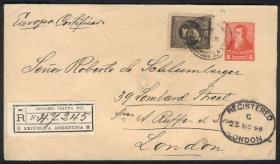 Europa Certificada
Señor Roberto de Schlumberger
39 Lombard Street
London
ROSARIO (SANTA FE)
R No. 47245
REPÚBLICA ARGENTINA
REGISTERED
C
23 NO 96
LONDON